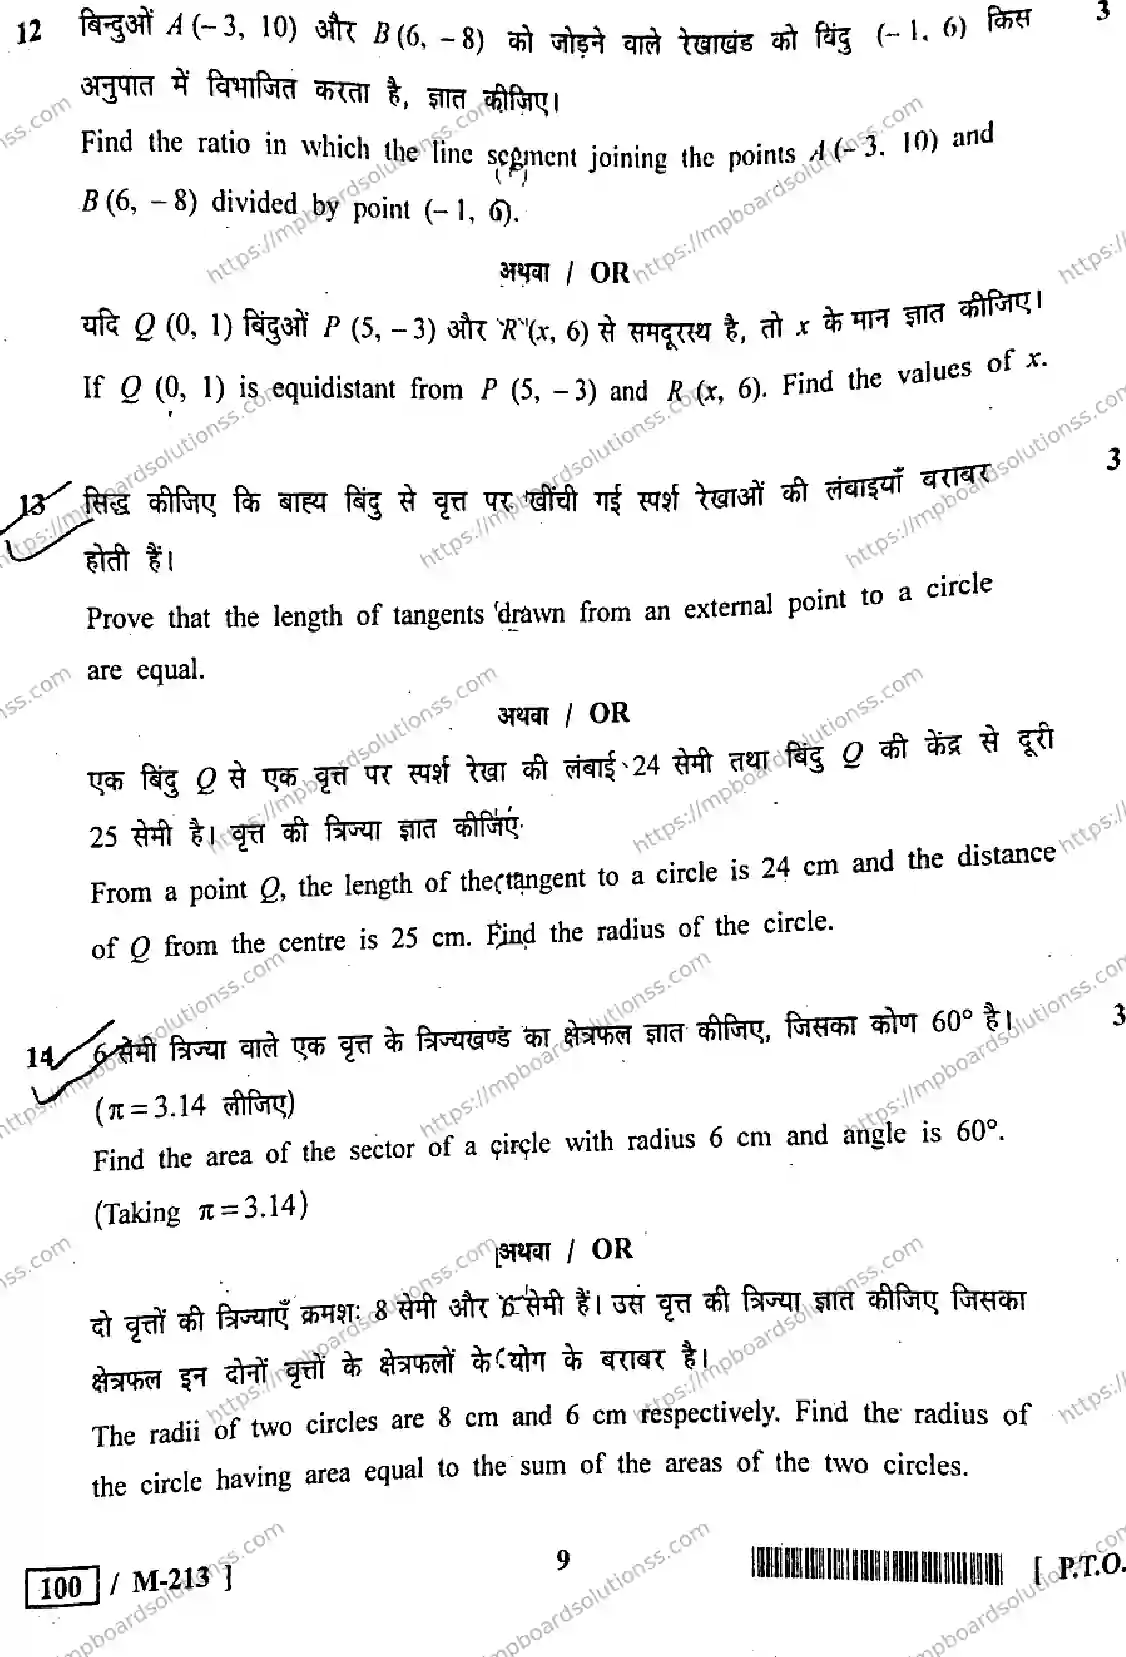 12 बिन्दुओं A (– 3, 10) और B (6, – 8) को जोड़ने वाले रेखाखंड को बिंदु (– 1, 6) किस 3
अनुपात में विभाजित करता है, ज्ञात कीजिए।
Find the ratio in which the line segment joining the points A (– 3, 10) and
B (6, – 8) divided by point (– 1, 6).
अथवा / OR
यदि Q (0, 1) बिंदुओं P (5, – 3) और R (x, 6) से समदूरस्थ है, तो x के मान ज्ञात कीजिए।
If Q (0, 1) is equidistant from P (5, – 3) and R (x, 6). Find the values of x.
13 सिद्ध कीजिए कि बाह्य बिंदु से वृत्त पर खींची गई स्पर्श रेखाओं की लंबाइयाँ बराबर 3
होती हैं।
Prove that the length of tangents drawn from an external point to a circle
are equal.
अथवा / OR
एक बिंदु Q से एक वृत्त पर स्पर्श रेखा की लंबाई 24 सेमी तथा बिंदु Q की केंद्र से दूरी
25 सेमी है। वृत्त की त्रिज्या ज्ञात कीजिए
From a point Q, the length of the tangent to a circle is 24 cm and the distance
of Q from the centre is 25 cm. Find the radius of the circle.
14 6 सेमी त्रिज्या वाले एक वृत्त के त्रिज्यखण्ड का क्षेत्रफल ज्ञात कीजिए, जिसका कोण 60° है। 3
(π = 3.14 लीजिए)
Find the area of the sector of a circle with radius 6 cm and angle is 60°.
(Taking π = 3.14)
अथवा / OR
दो वृत्तों की त्रिज्याएँ क्रमशः 8 सेमी और 6 सेमी हैं। उस वृत्त की त्रिज्या ज्ञात कीजिए जिसका
क्षेत्रफल इन दोनों वृत्तों के क्षेत्रफलों के योग के बराबर है।
The radii of two circles are 8 cm and 6 cm respectively. Find the radius of
the circle having area equal to the sum of the areas of the two circles.
100 / M-213 ] 9 [ P.T.O.
https://mpboardsolutionss.com